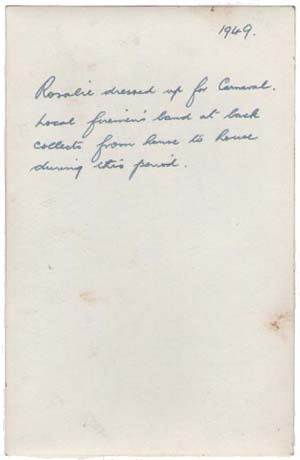 1949.
Rosalie dressed up for Carnaval.
Local firemen's band at back
collects from house to house
during this period.